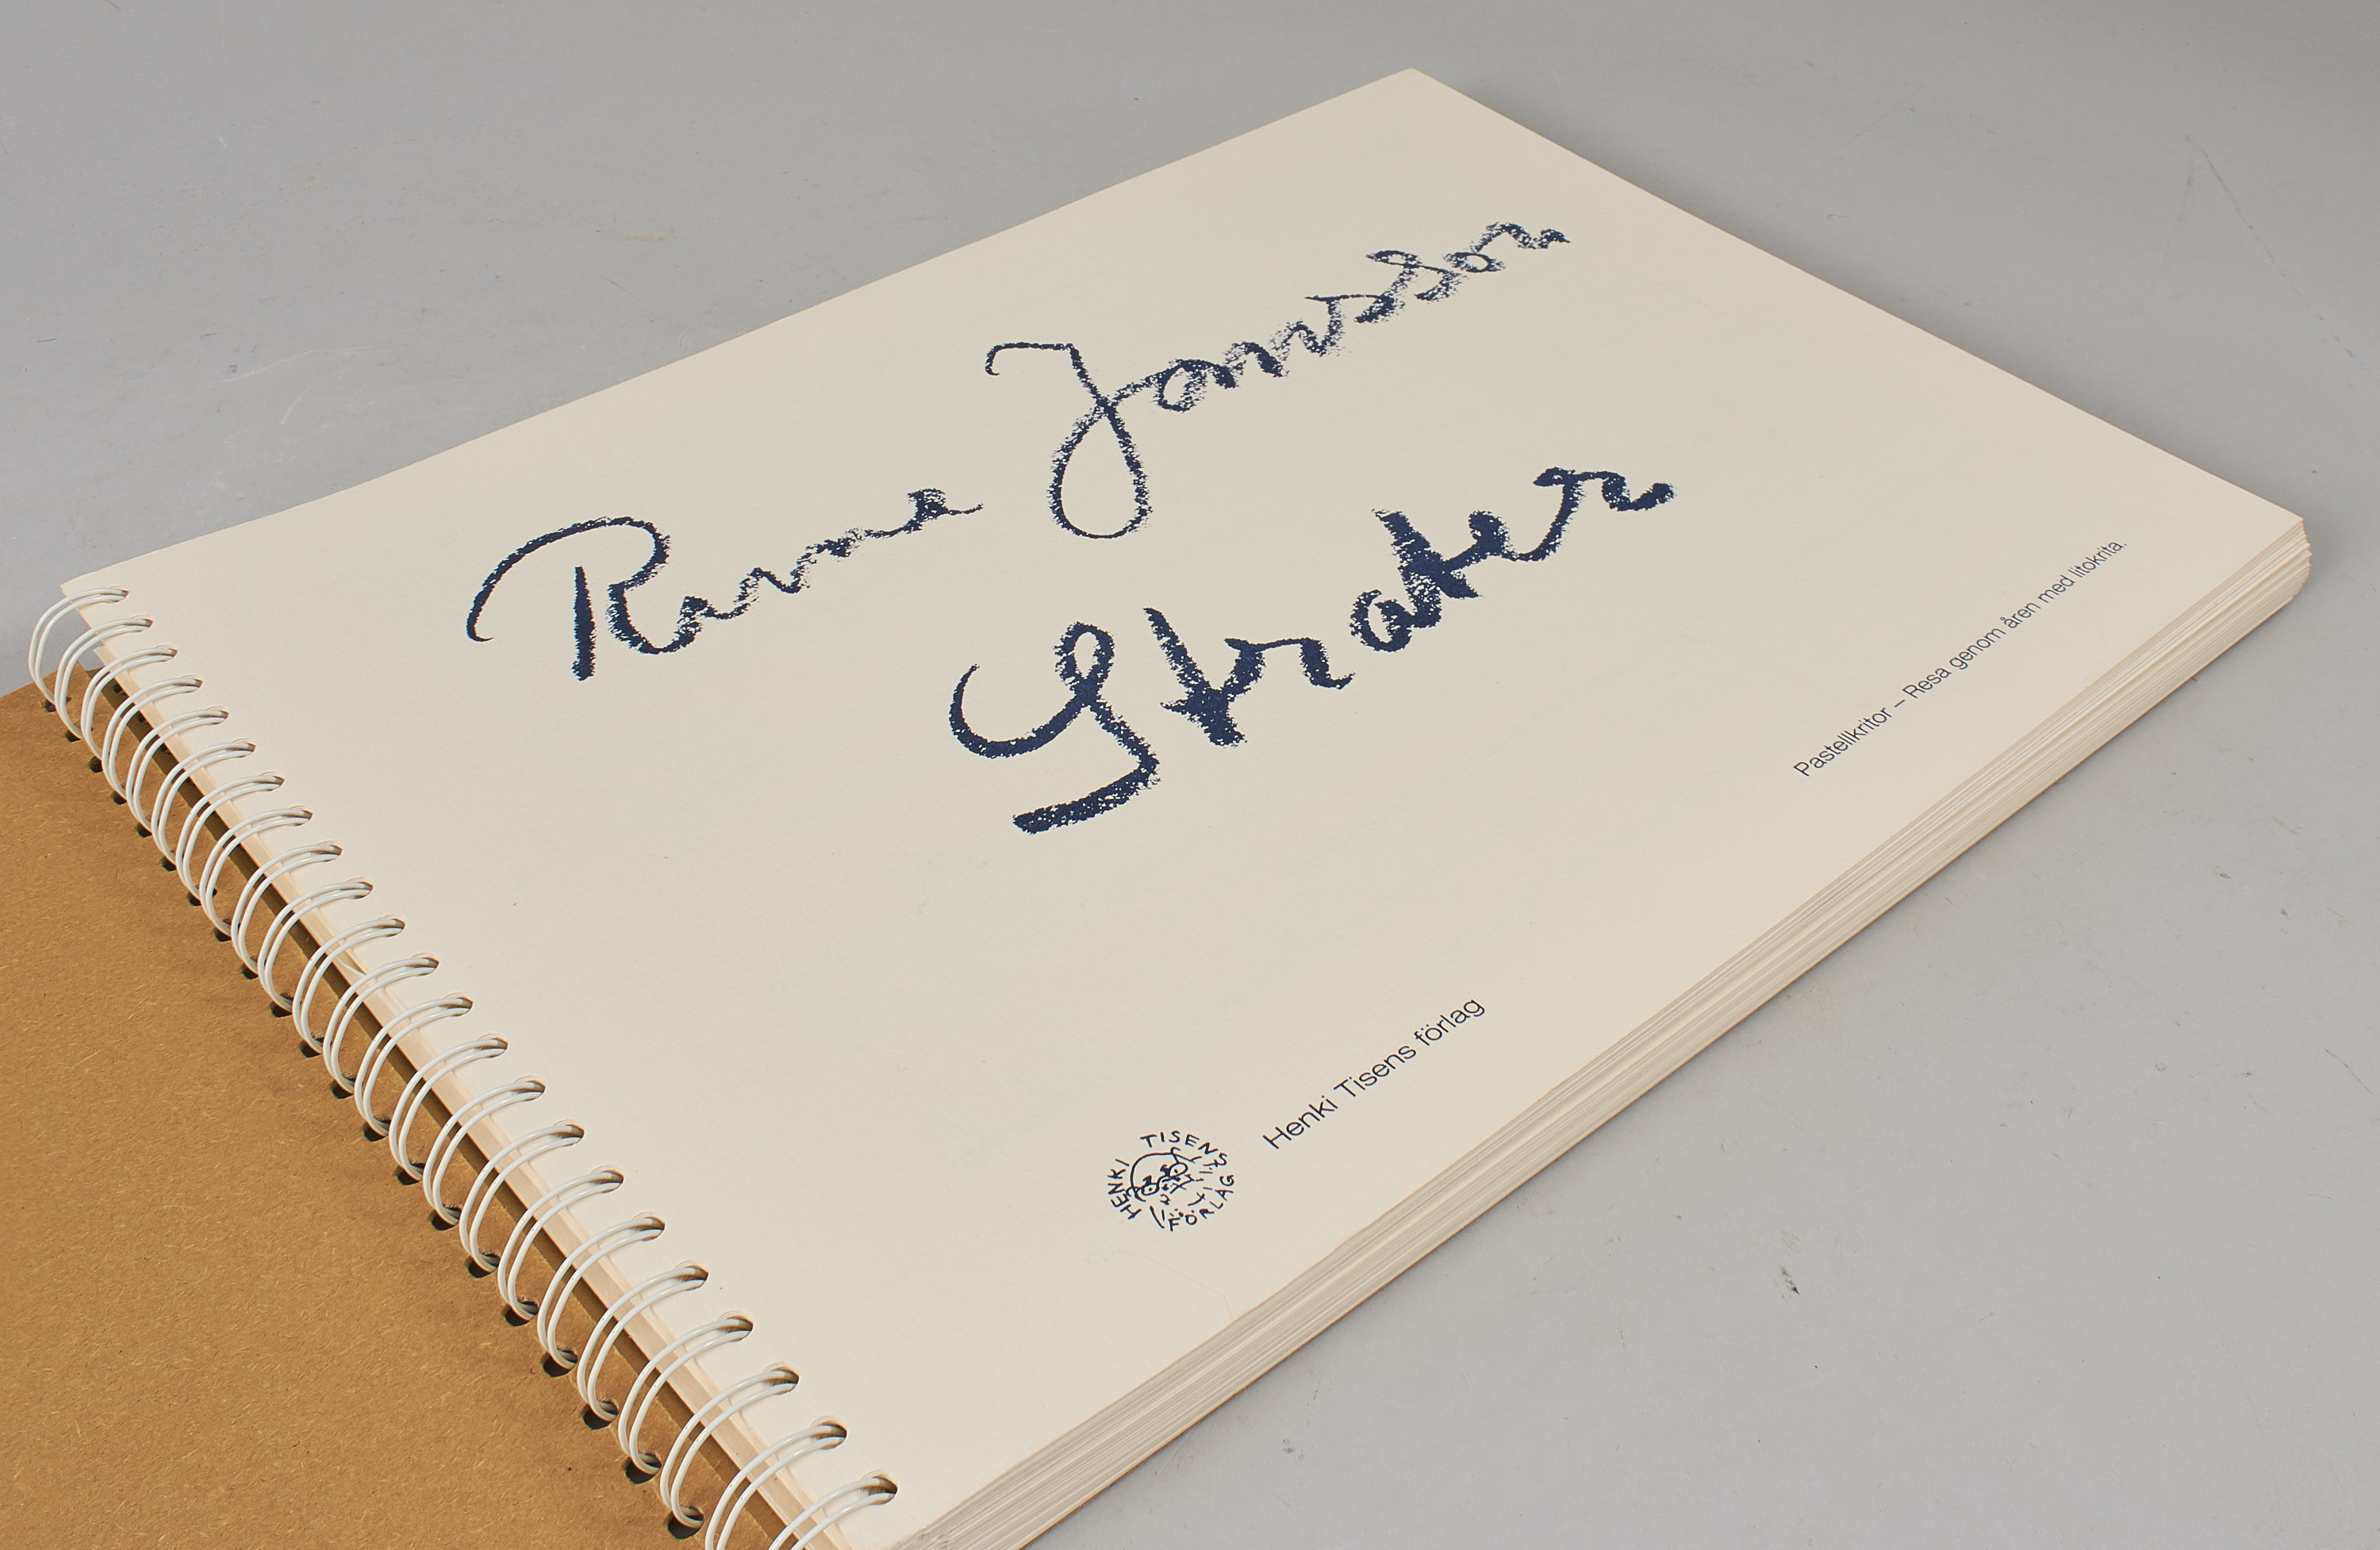 Rune Jansson
Strater
Pastellkritor – Resa genom åren med litokrita.
Henki Tisens förlag
HENKI TISENS FÖRLAG